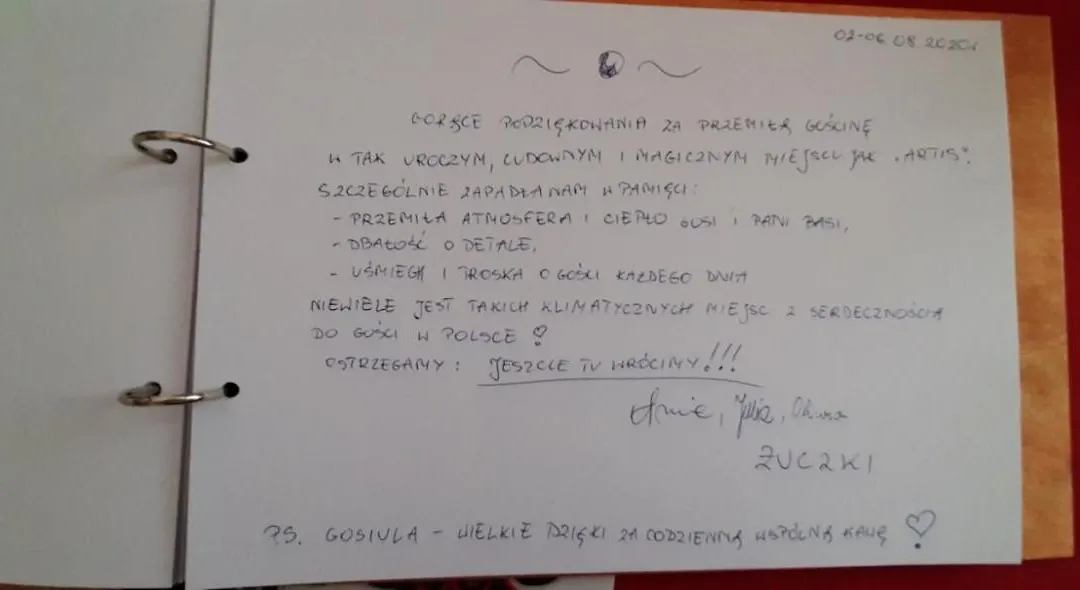 02-06.08.2020r
GORĄCE PODZIĘKOWANIA ZA PRZEMIŁĄ GOŚCINĘ
W TAK UROCZYM, CUDOWNYM I MAGICZNYM MIEJSCU JAK "ARTIS".
SZCZEGÓLNIE ZAPADŁA NAM W PAMIĘCI:
- PRZEMIŁA ATMOSFERA I CIEPŁO GOSI I PANI BASI,
- DBAŁOŚĆ O DETALE,
- UŚMIECH I TROSKA O GOŚCI KAŻDEGO DNIA
NIEWIELE JEST TAKICH KLIMATYCZNYCH MIEJSC Z SERDECZNOŚCIĄ
DO GOŚCI W POLSCE!
OSTRZEGAMY: JESZCZE TU WRÓCIMY!!!
Julia,
ŻUCZKI
PS. GOSIULA - WIELKIE DZIĘKI ZA CODZIENNĄ WSPÓLNĄ KAWĘ